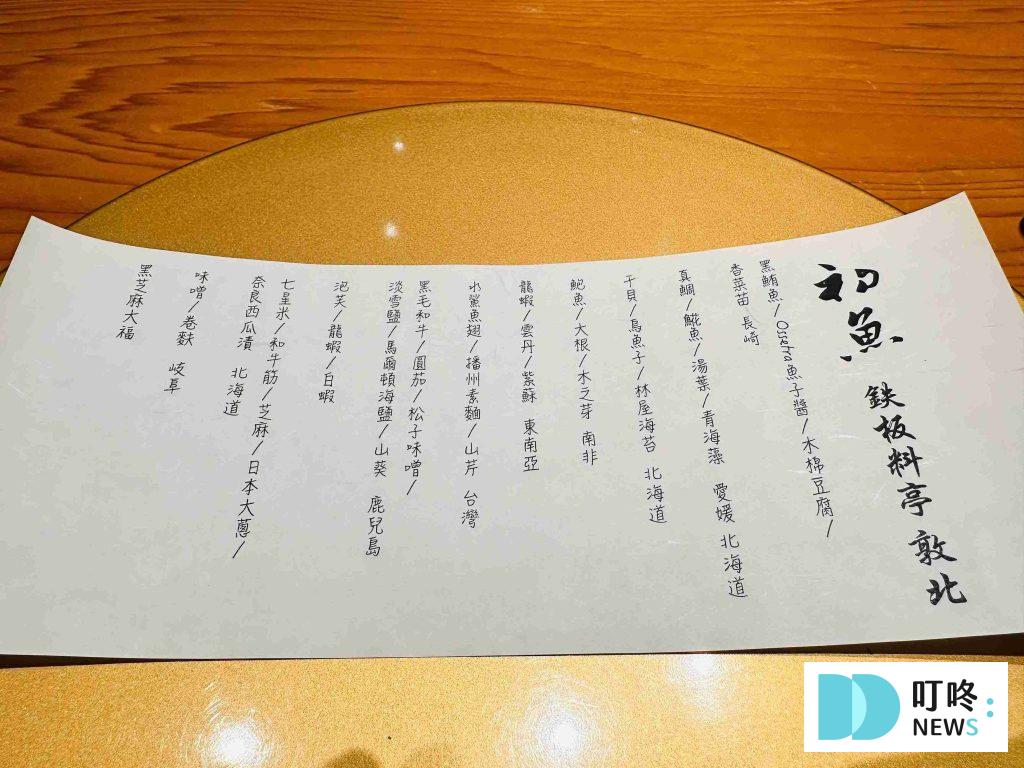 初魚 鉄板料亭 敦北
黑鮪魚/Ossetra魚子醬/木棉豆腐/
香菜苗 長崎
真鯛/糀魚/湯葉/青海藻 愛媛 北海道
干貝/烏魚子/林屋海苔 北海道
鮑魚/大根/木之芽 南非
龍蝦/雲丹/紫蘇 東南亞
水鯊魚翅/播州素麵/山芹 台灣
黑毛和牛/圓茄/松子味噌/
淡雪鹽/馬爾頓海鹽/山葵 鹿兒島
泡芙/龍蝦/白蝦
七星米/和牛筋/芝麻/日本大蔥/
奈良西瓜漬 北海道
味噌/卷麩 岐阜
黑芝麻大福
叮咚
NEWS